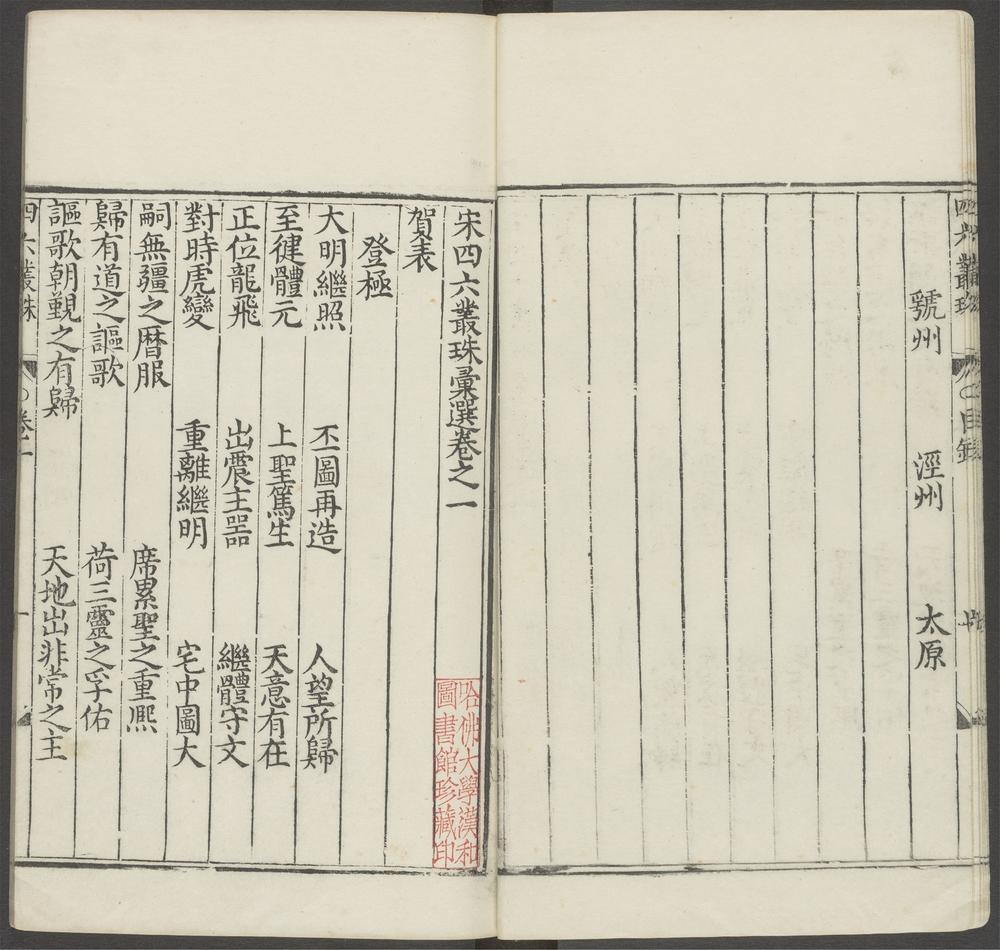 虢州　涇州　太原
宋四六叢珠彙選卷之一
賀表
登極
大明繼照　丕圖再造　人望所歸
至健體元　上聖篤生　天意有在
正位龍飛　出震主噐　繼體守文
對時虎變　重離繼明　宅中圖大
嗣無疆之曆服　席累聖之重熈
歸有道之謳歌　荷三靈之孚佑
謳歌朝覲之有歸　天地出非常之主
四六叢珠　卷一　一
哈佛大學漢和
圖書館珍藏印